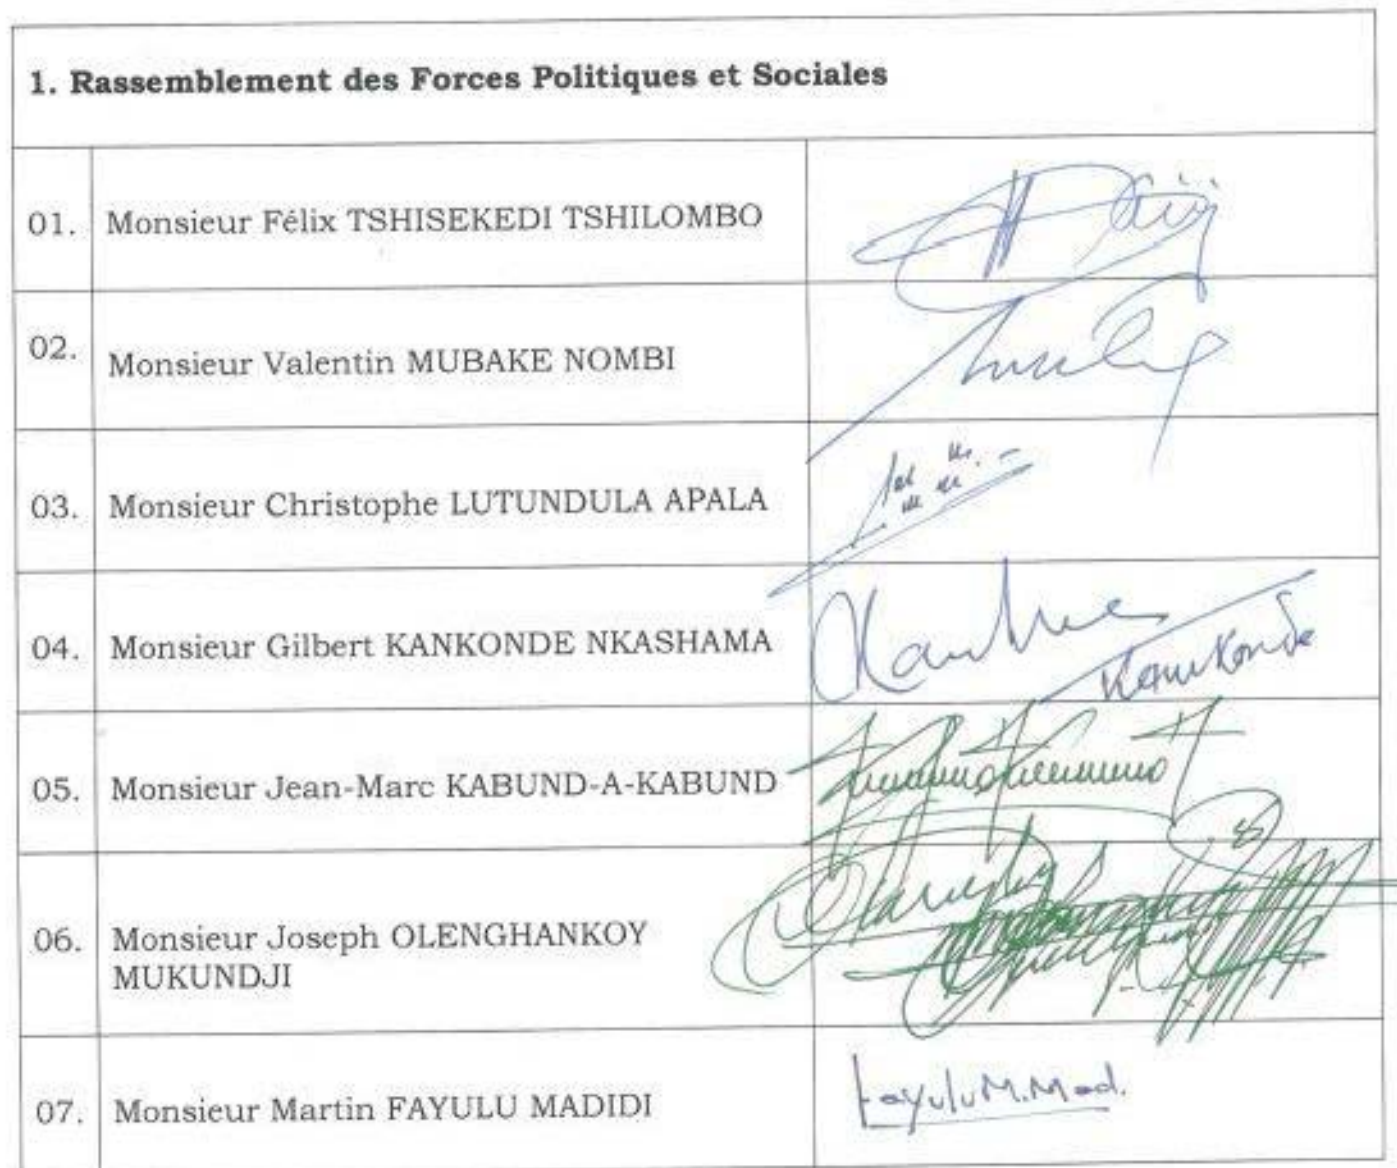 1. Rassemblement des Forces Politiques et Sociales
01. Monsieur Félix TSHISEKEDI TSHILOMBO
02. Monsieur Valentin MUBAKE NOMBI
03. Monsieur Christophe LUTUNDULA APALA
04. Monsieur Gilbert KANKONDE NKASHAMA
Kankonde
05. Monsieur Jean-Marc KABUND-A-KABUND
06. Monsieur Joseph OLENGHANKOY
MUKUNDJI
07. Monsieur Martin FAYULU MADIDI
Fayulu M. Mad.